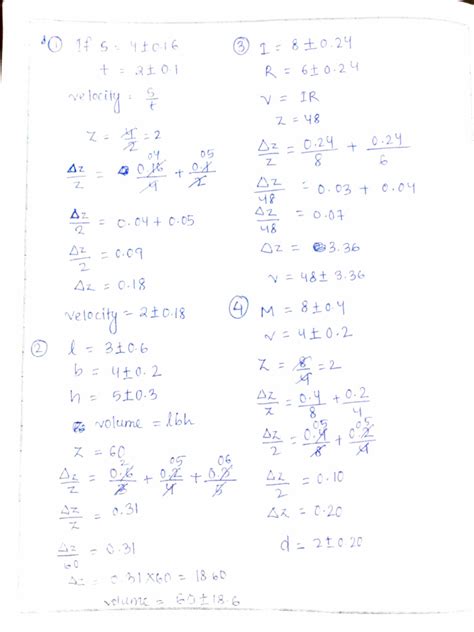 ① If S = 4 ± 0.16
t = 2 ± 0.1
velocity = S/t
Z = 4/2 = 2
ΔZ/Z = 0.16/4 + 0.1/2
04 05
ΔZ/2 = 0.04 + 0.05
ΔZ/2 = 0.09
ΔZ = 0.18
velocity = 2 ± 0.18
② l = 3 ± 0.6
b = 4 ± 0.2
h = 5 ± 0.3
volume = lbh
Z = 60
2 05 06
ΔZ/Z = 0.6/3 + 0.2/4 + 0.3/5
ΔZ/Z = 0.31
ΔZ/60 = 0.31
ΔZ = 0.31 × 60 = 18.60
volume = 60 ± 18.6
③ I = 8 ± 0.24
R = 6 ± 0.24
V = IR
Z = 48
ΔZ/Z = 0.24/8 + 0.24/6
ΔZ/48 = 0.03 + 0.04
ΔZ/48 = 0.07
ΔZ = 3.36
V = 48 ± 3.36
④ M = 8 ± 0.4
V = 4 ± 0.2
Z = 8/4 = 2
ΔZ/Z = 0.4/8 + 0.2/4
05 05
ΔZ/2 = 0.4/8 + 0.2/4
ΔZ/2 = 0.10
ΔZ = 0.20
d = 2 ± 0.20